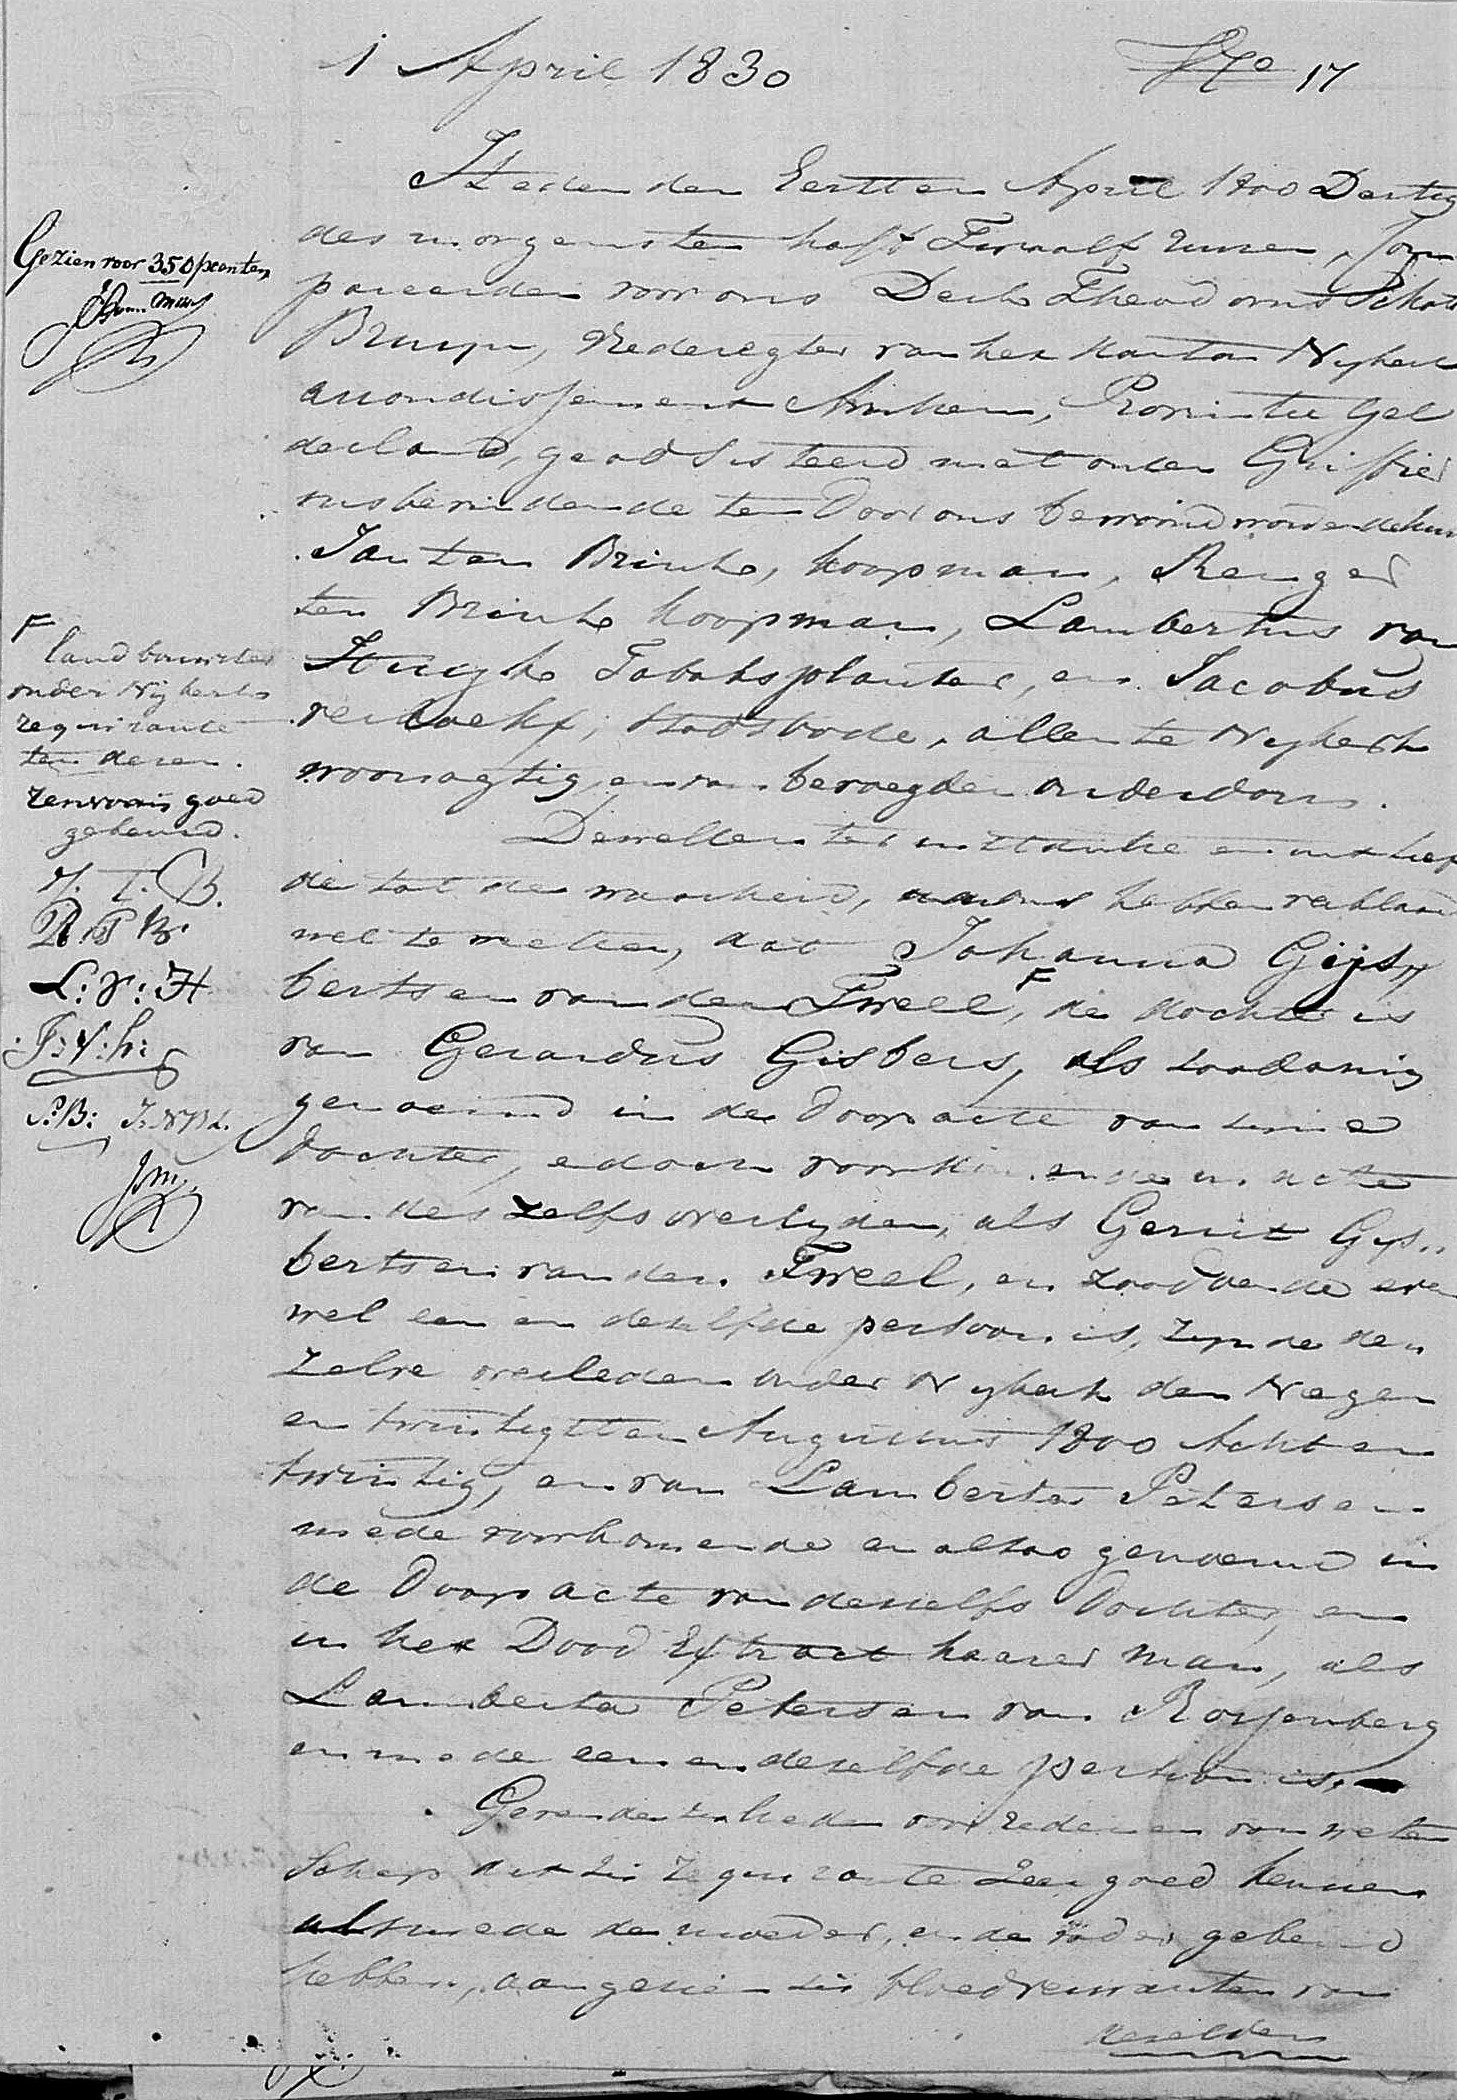 1 April 1830 No 17
Heden den Eersten April 1800 Dertig
des morgens ten half Twaalf uuren, Com
pareerden voor ons Derk Theodorus Schol
Bruyn, Vrederegter van het kanton Nykerk
arrondissement Arnhem, Provintie Gel
derland, geadsisteerd met onzen Griffier
ons bevindende ten Door ons bewoond wordende huize
Jan ten Brink, koopman, Renger
ten Brink koopman, Lambertus van
Huygh Tabaksplanter, en Jacobus
verhoeff, Stadsbode, allen te Nykerk
woonagtig, en van bevoegden ouderdom.
Dewelken ter instantie en uit lief
de tot de waarheid, aan ons hebben verklaard
wel te weten, dat Johanna Gijs
bertsen van den Tweel F, de dochter is
van Gerardus Gisbers, als zoodanig
genoemd in de Doop acte van zyne
Dochter, edoch voorkomende in acte
van des zelfs overlyden, als Gerrit Gys
bertsen van den Tweel, en zoodoende even
wel een en dezelfde persoon is, zynde de
zelve overleden onder Nykerk den Negen
en twintigsten Augustus 1800 Acht en
twintig, en van Lambertje Petersen
mede voorkomende en alzoo genoemd in
de Doop acte van deszelfs Dochter, en
in het Dood Extract haarer man, als
Lamberta Petersen van Roijenberg
en mede een en dezelfde persoon is.
Gevende zy lieden voor redenen van weten
schap dat zij requirante zeer goed kennen
alsmede de moeder, en de vader gekend
hebben, aangezien zij bloedverwanten van
dezelden
Gezien voor 350 planten
F
landbouwster
onder Nykerk
requirante
ten dezen.
renvooij goed
gekeurd.
J. T. B.
R. T. B.
L: V: H
J: V: h: